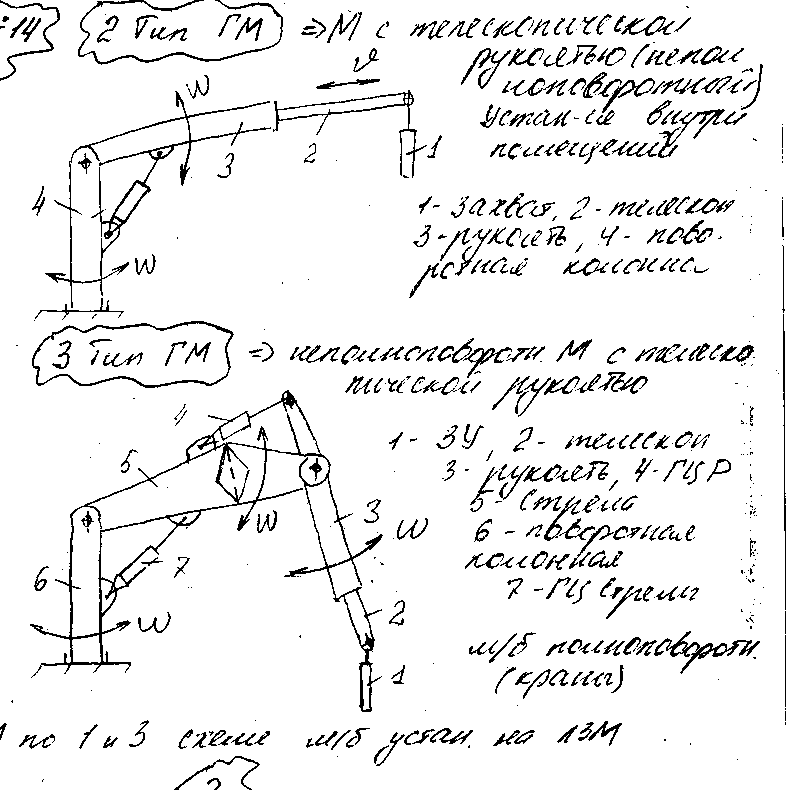 №14 2 Тип ГМ => М с телескопической
рукоятью (непол
ноповоротный)
v
W
Устан-ие внутри
помещений
3 2 1
4
1- Захват, 2- телескоп
3-рукоять, 4- пово-
ротная колонна
W
3 Тип ГМ => неполноповоротн. М с телеско
пической рукоятью
4
1- ЗУ, 2- телескоп
5
3- рукоять, 4-ГЦР
5- Стрела
W
3 W
6 - поворотная
колонная
6 7
7-ГЦ Стрелы
2
W
м/б полноповоротн.
(краны)
1
по 1 и 3 схеме м/б устан. на ЛЗМ